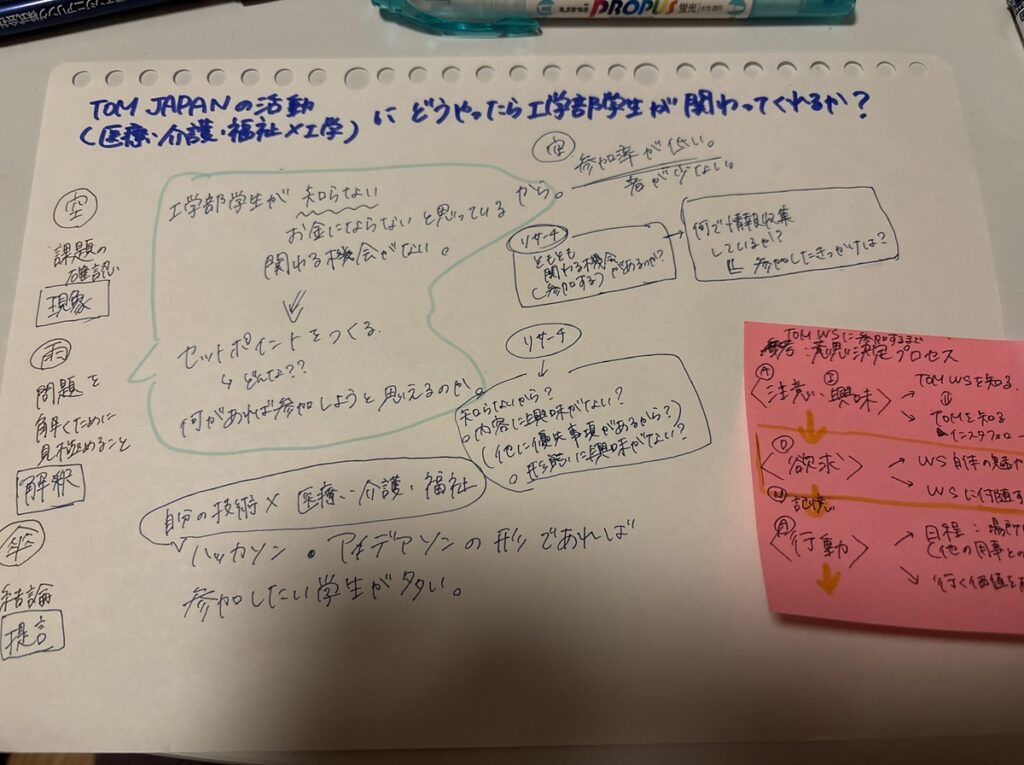 PROPUS 蛍光
TOM JAPANの活動
(医療・介護・福祉×工学)
にどうやったら工学部学生が関わってくれるか?
空
課題の
確認
現象
雨
問題を
解くために
見極めること
解釈
傘
結論
提言
工学部学生が知らない
お金にならないと思っているから。
関わる機会がない。
セットポイントをつくる。
↳どんな??
何があれば参加しようと思えるのか。
空
参加率が低い。
者が少ない。
リサーチ
ともとも
関わる機会
(参加する)があるのか?
→
何で情報収集
しているか?
参加したきっかけは?
リサーチ
知らないから?
内容に興味がない?
(他に優先事項があるから?)
形態に興味がない?
自分の技術×医療・介護・福祉
ハッカソン・アイデアソンの形であれば
参加したい学生が多い。
TOM WSに参加するまで
参考:意思決定プロセス
A I
〈注意・興味〉
TOM WSを知る
TOMを知る
インスタフォロー
D
〈欲求〉
→ WS自体の
→ WSに付随す
M 記憶
A
〈行動〉
→ 日程:場所
(他の用事との
行く価値を